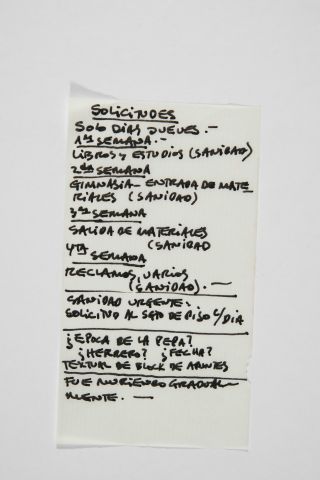 SOLICITUDES
SOLO DIAS JUEVES.-
1ª SEMANA.-
LIBROS y ESTUDIOS (SANIDAD)
2da SEMANA
GIMNASIA - ENTRADA DE MATE-
RIALES (SANIDAD)
3ª SEMANA
SALIDA DE MATERIALES
(SANIDAD
4TA SEMANA
RECLAMOS, VARIOS
(SANIDAD). —
SANIDAD URGENTE:
SOLICITUD AL DE PISO C/DIA
¿EPOCA DE LA PEPA?
¿HERRERO? ¿FECHA?
TEXTUAL DE BLOCK DE APUNTES
FUE MURIENDO GRADUAL-
MENTE. —